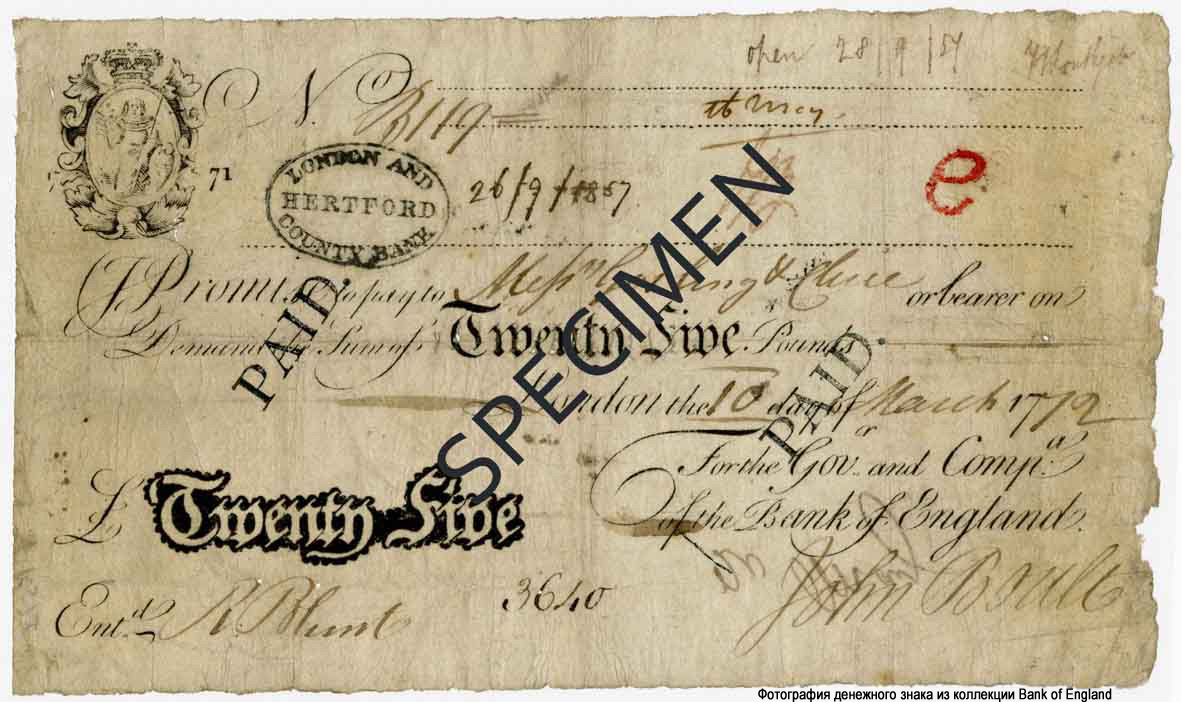 open 28/9/57
No B119
71
LONDON AND
HERTFORD
COUNTY BANK
26/9/1857
e
I Promise to pay to Messrs or bearer on
Demand Sum of Twenty Five Pounds
London the 10 day of March 1772
For the Govr and Compa
of the Bank of England.
£ Twenty Five
Entd R Blunt
3640
John
PAID.
PAID.
SPECIMEN
Фотография денежного знака из коллекции Bank of England